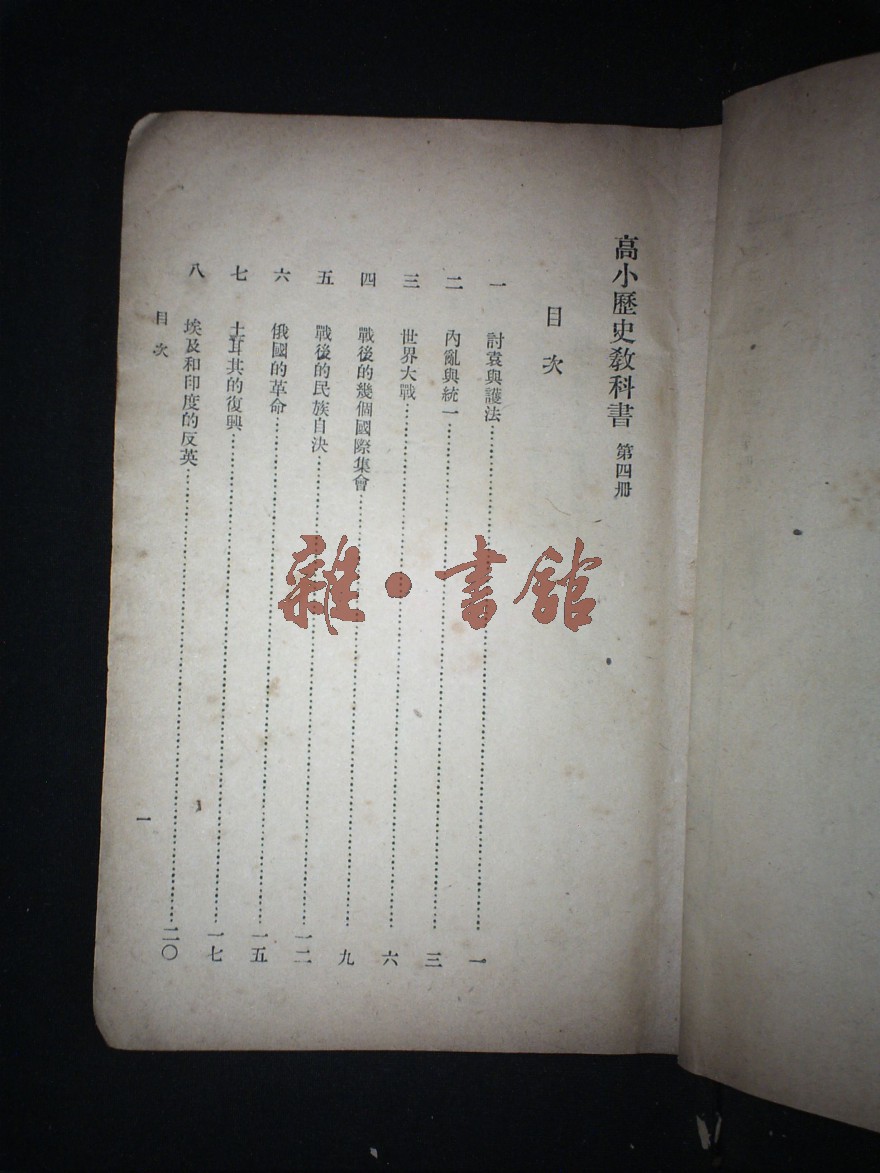 高小歷史教科書 第四册
目次
一 討袁與護法 一
二 內亂與統一 三
三 世界大戰 六
四 戰後的幾個國際集會 九
五 戰後的民族自決 一二
六 俄國的革命 一五
七 土耳其的復興 一七
八 埃及和印度的反英 二〇
目次
一
雜·書館